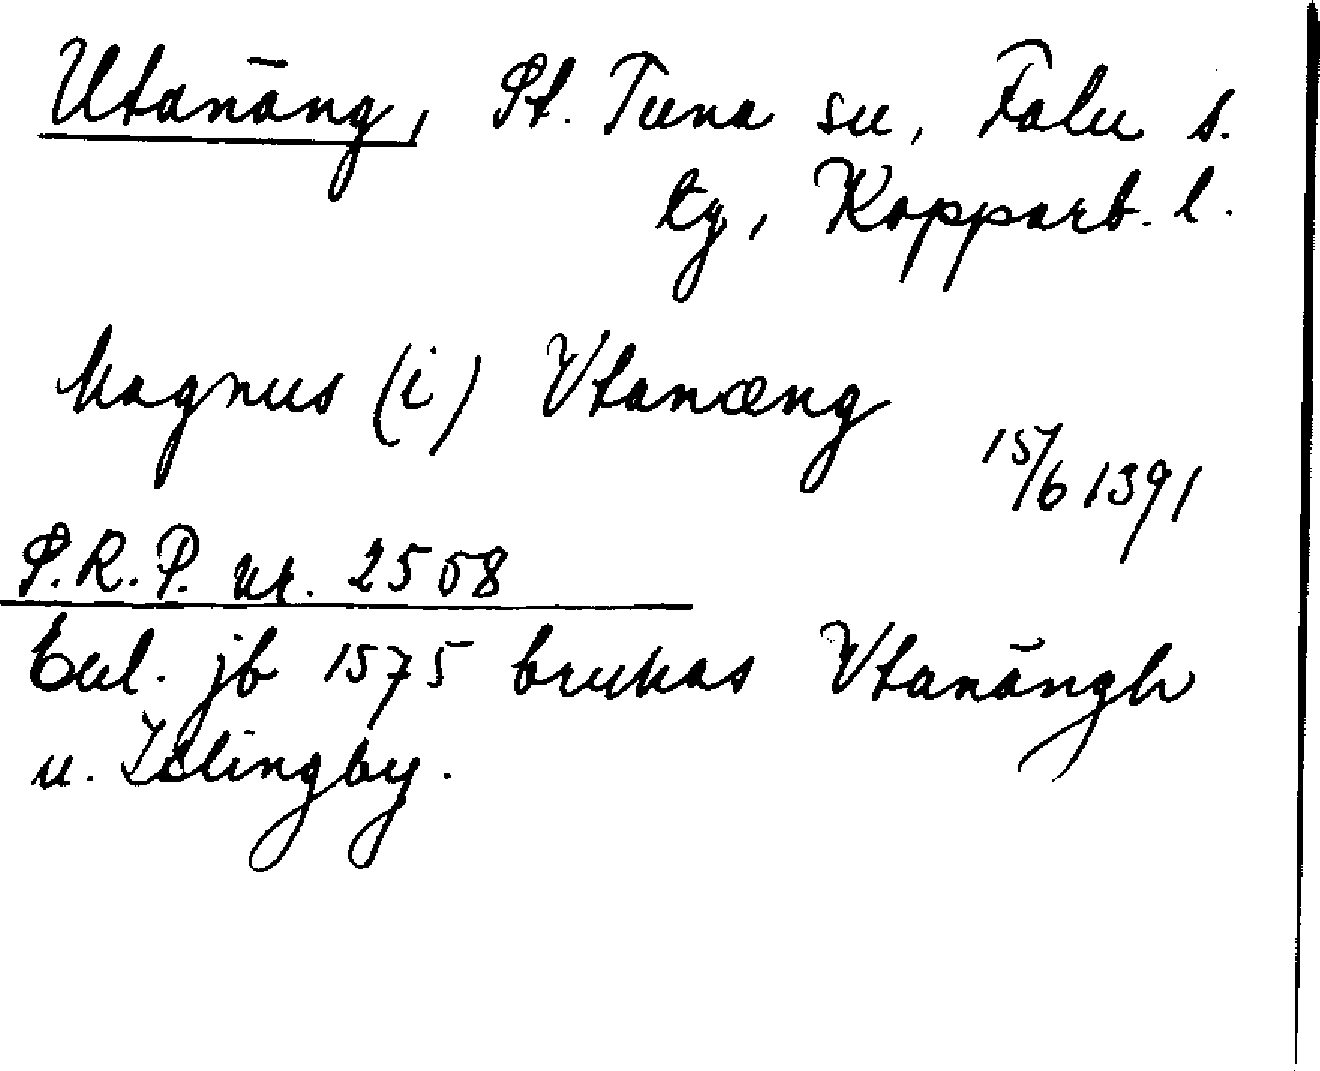 Utanäng, St. Tuna sn, Falu s.
tg, Kopparb. l.
Magnus (i) Vtanæng
15/6 1391
S.R.P. nr. 2508
Enl. jb 1575 brukas Vtanängh
u. Islingby.